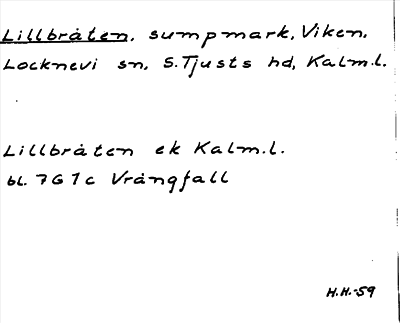 Lillbråten, sumpmark, Viken,
Locknevi sn, S. Tjusts hd, Kalm.l.
Lillbråten ek Kalm.l.
bl. 7G1c Vrångfall
H.H.-59